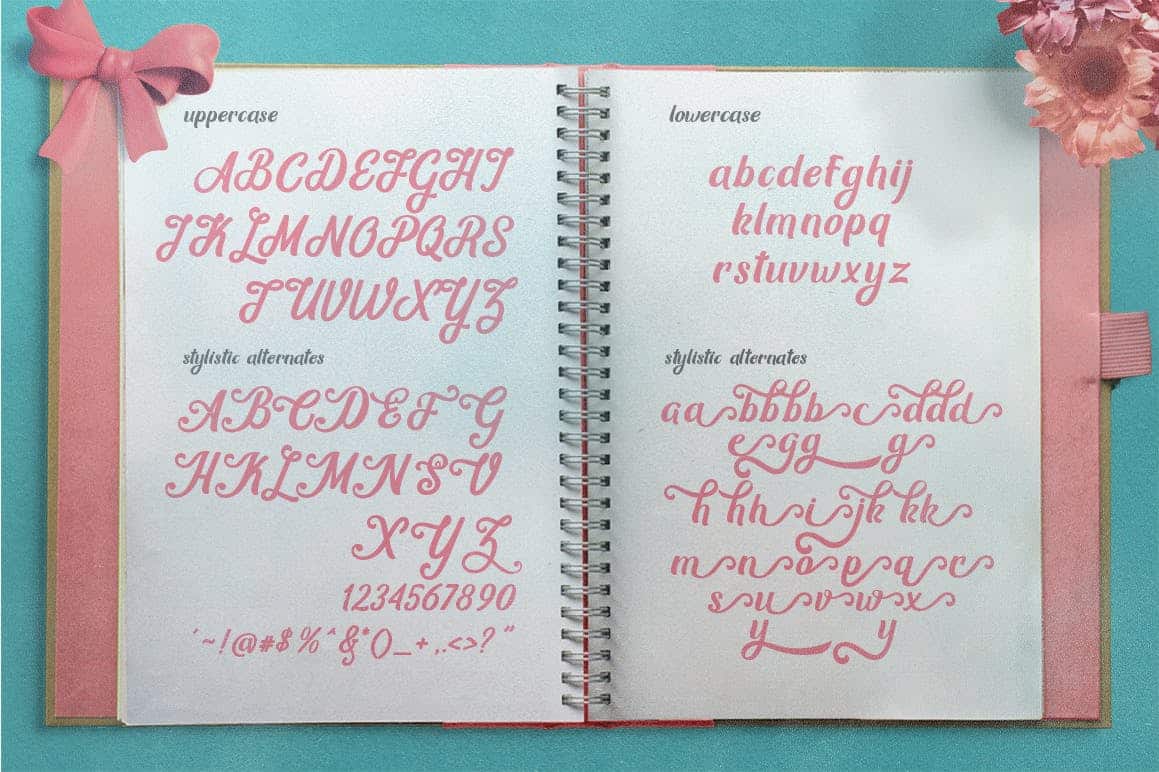 uppercase
ABCDEFGHI
JKLMNOPQRS
TUVWXYZ
stylistic alternates
ABCDEFG
HKLMNSV
XYZ
1234567890
´~!@#$%^&*()_+,.<>?"
lowercase
abcdefghij
klmnopq
rstuvwxyz
stylistic alternates
aabbbbcddd
eggg
hhhijkkk
mnopqr
suvwx
yy